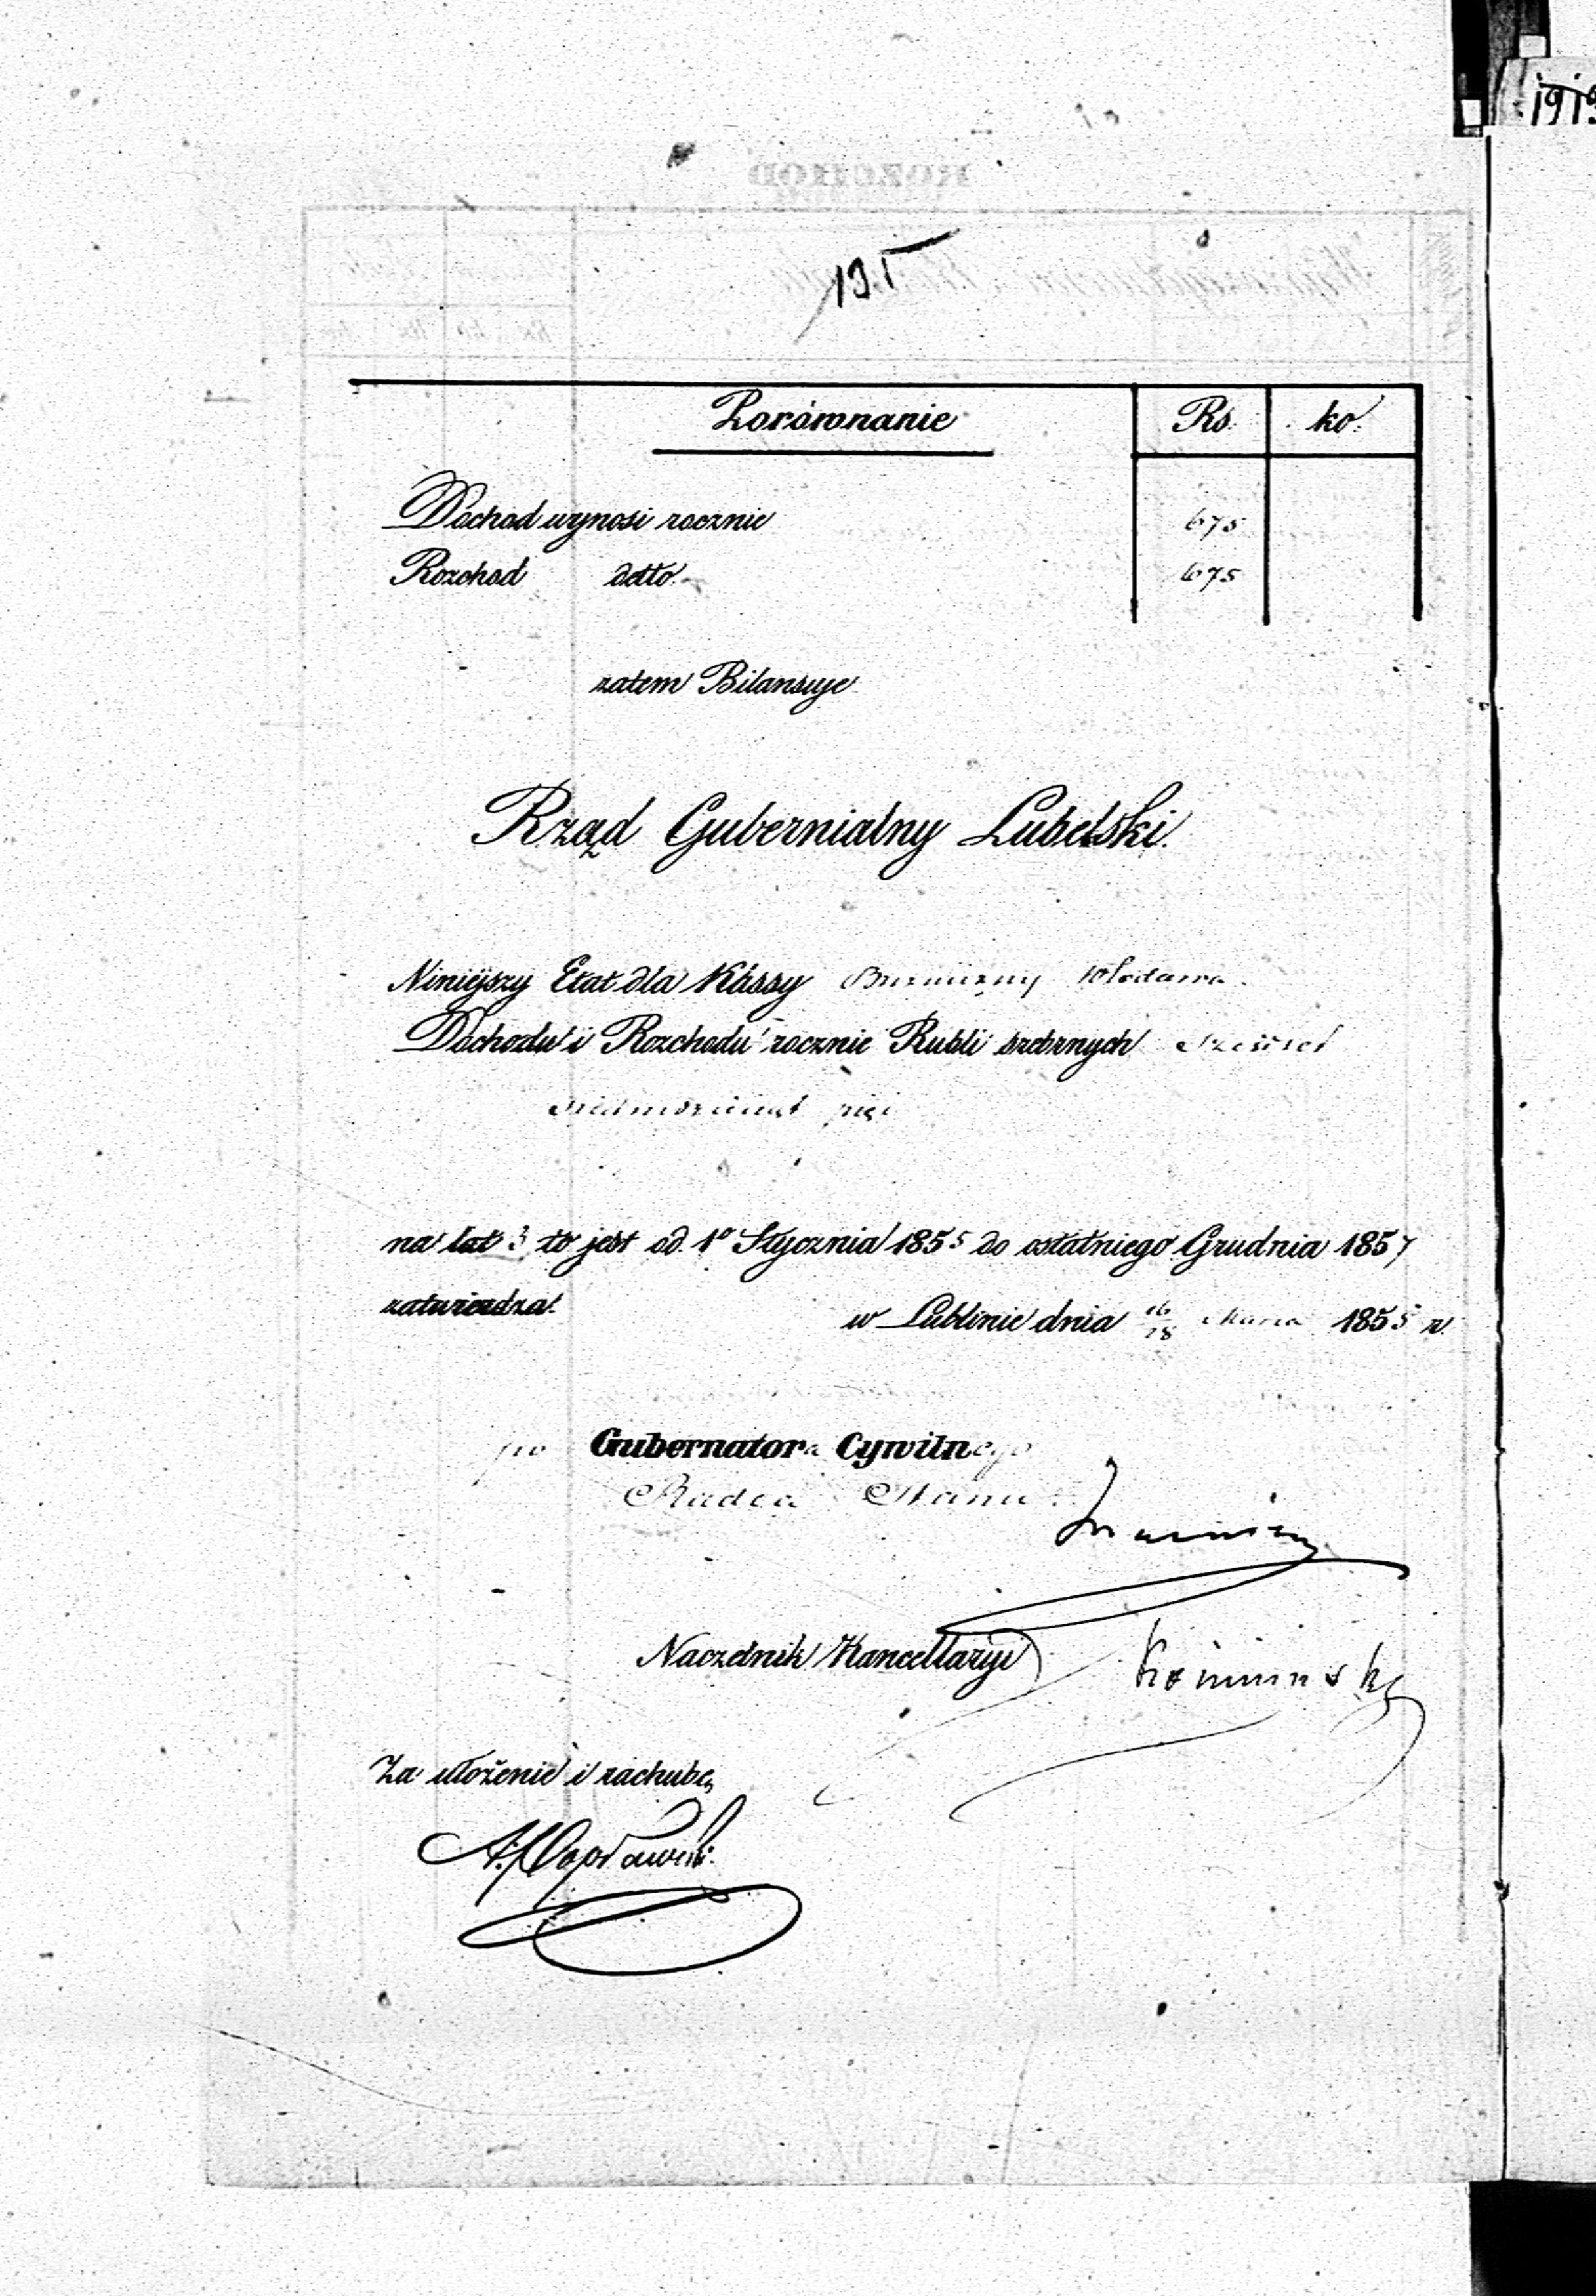 1919
195
Porównanie Rs. ko.
Dochod wynosi rocznie 675
Rozchod detto 675
zatem Bilansuje
Rząd Gubernialny Lubelski.
Niniejszy Etat dla Kassy Bużniczny Włodawa
Dochodu i Rozchodu rocznie Rubli srebrnych sześćset
siedmdziesiąt pięć
na lat 3 to jest od 1o Stycznia 1855 do ostatniego Grudnia 1857
zatwierdza.
w Lublinie dnia 16/28 Marca 1855 r.
po Gubernatora Cywilnego
Radca Stanu
Naczelnik Kancellaryi
Za ułożenie i rachubę